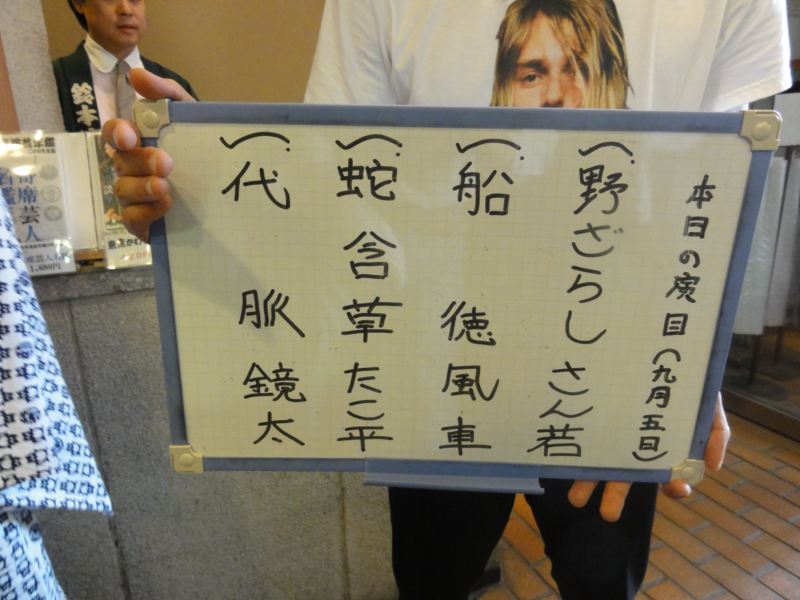 本日の演目(九月五日)
一、野ざらし さん若
一、船徳 風車
一、蛇含草 たこ平
一、代脈 鏡太
鈴本
寄席芸人
1,680円